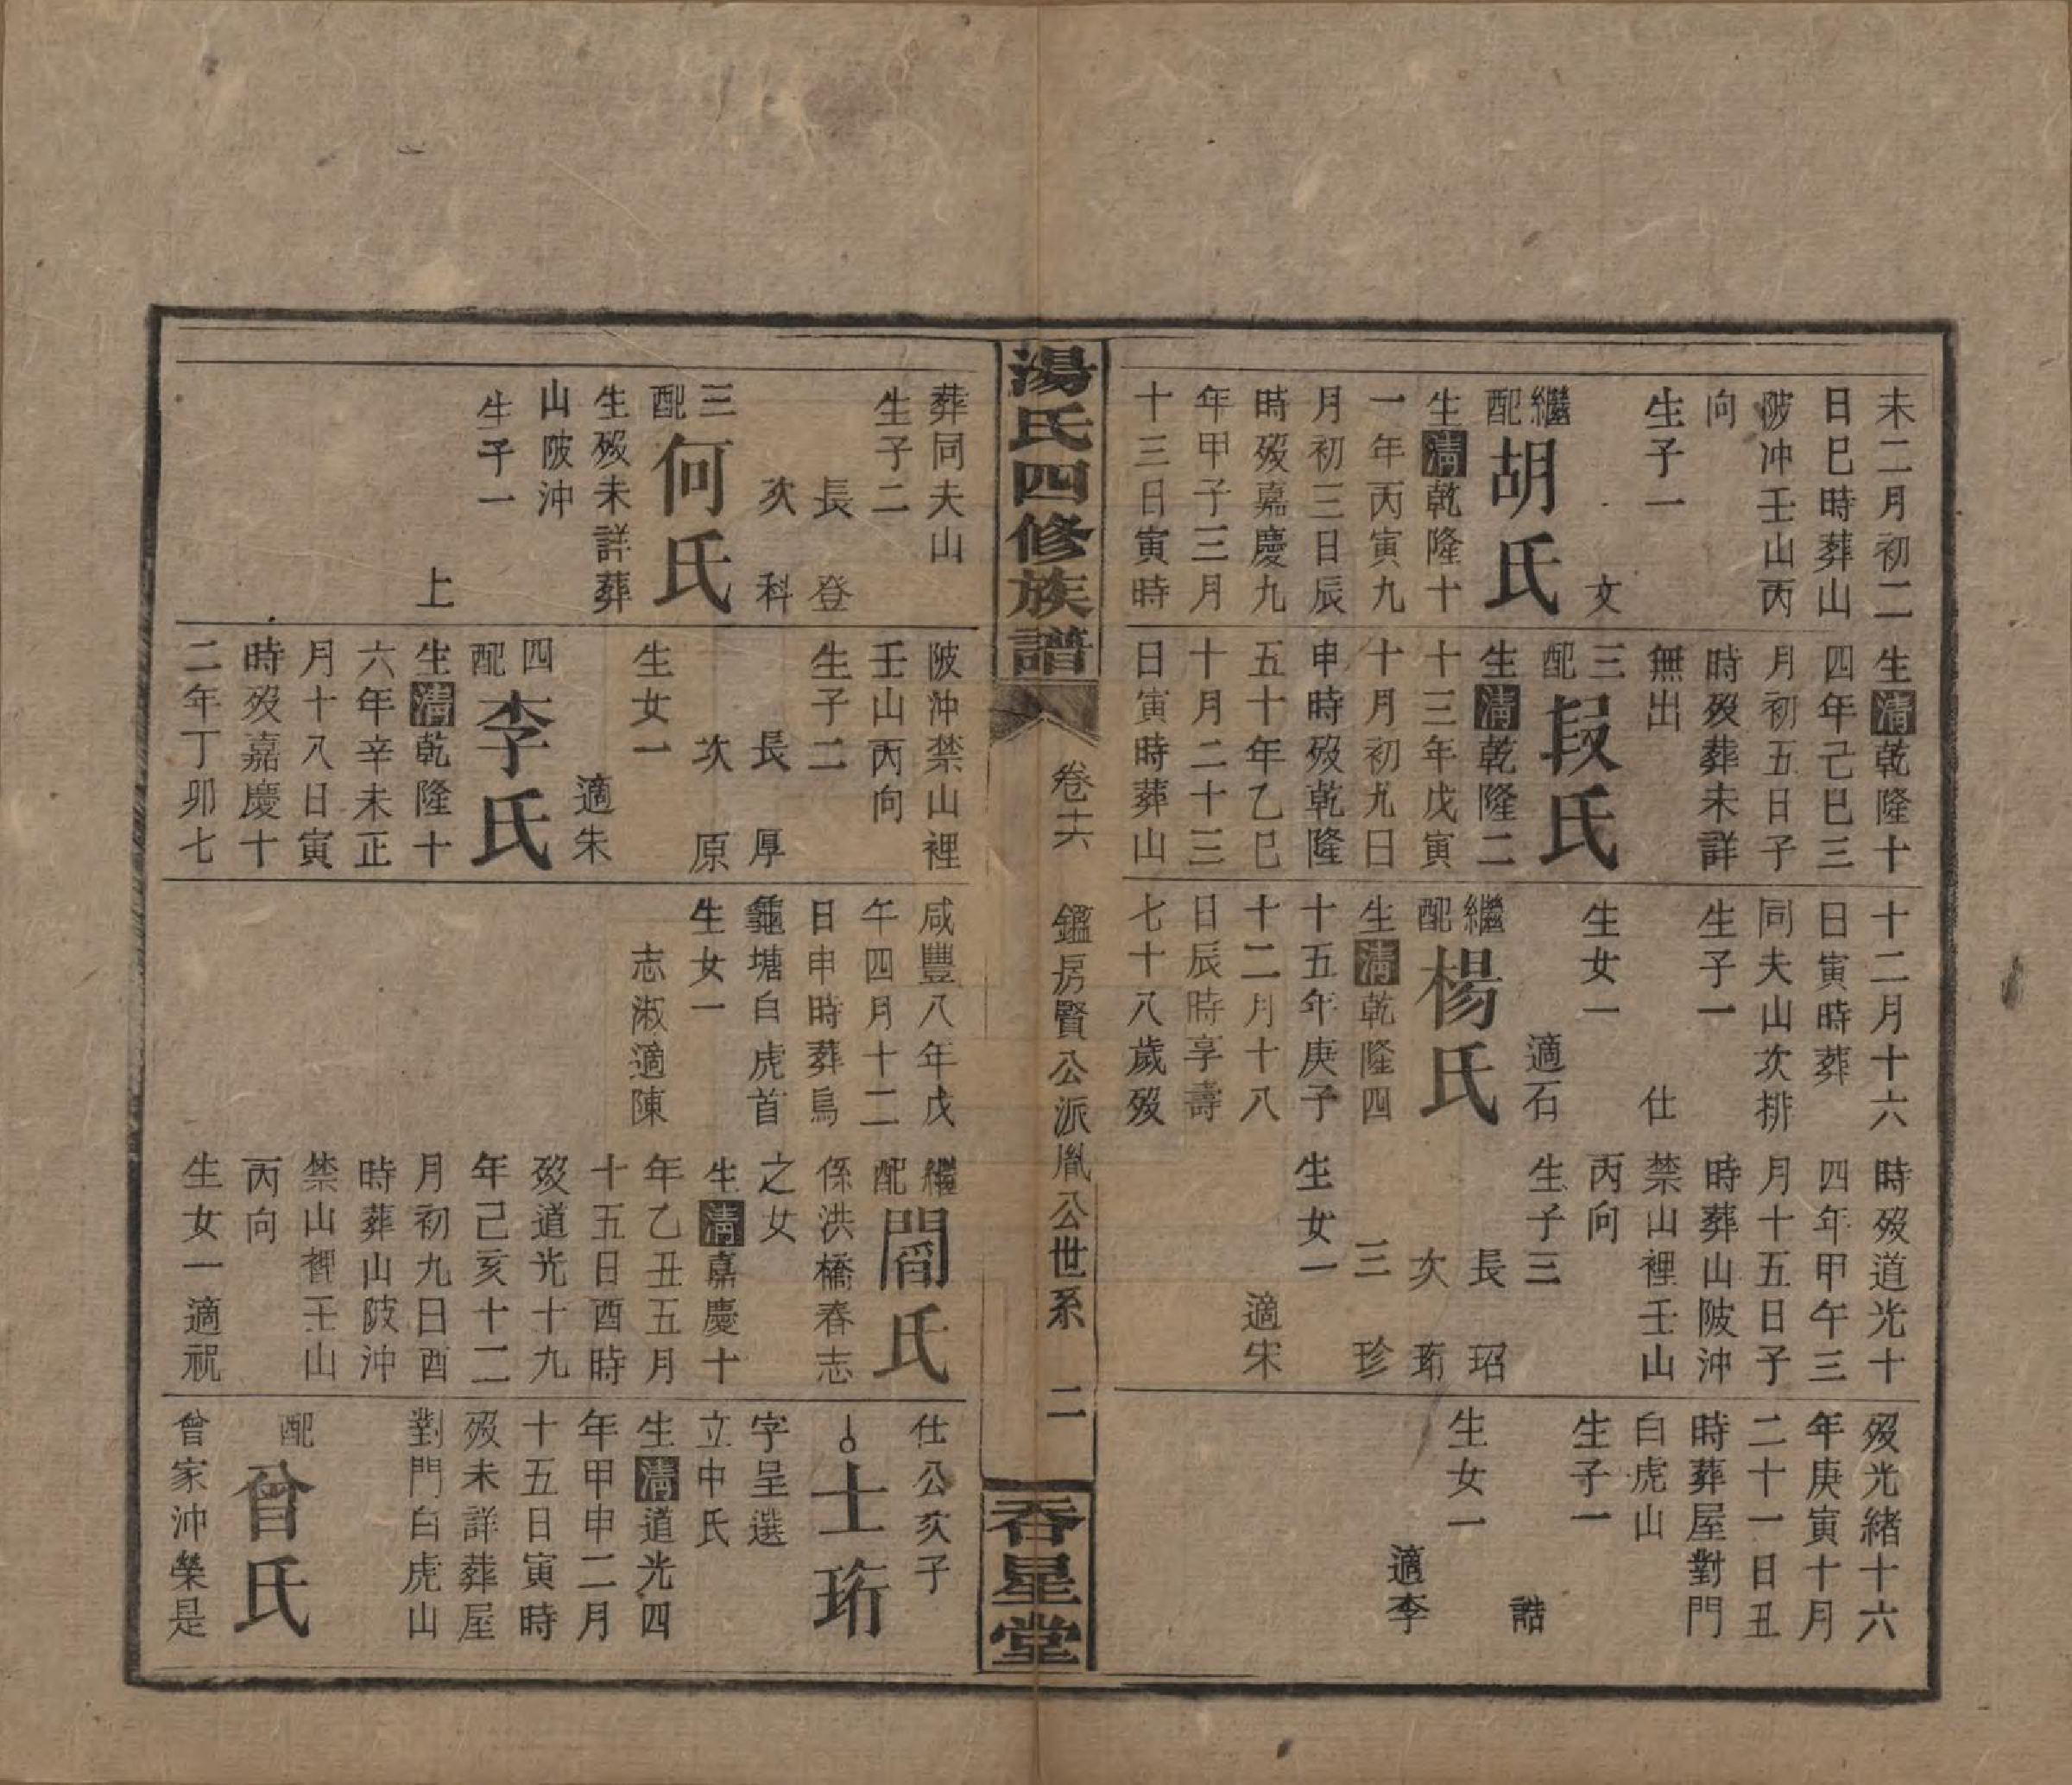 未二月初二
日巳時葬山
陂冲壬山丙
向
生子一
文
繼配胡氏
生清乾隆十
一年丙寅九
月初三日辰
時歿嘉慶九
年甲子三月
十三日寅時
生清乾隆十
四年己巳三
月初五日子
時歿葬未詳
無出
三配段氏
生清乾隆二
十三年戊寅
十月初九日
申時歿乾隆
五十年乙巳
十月二十三
日寅時葬山
十二月十六
日寅時葬
同夫山次排
生子一
仕
生女一
適石
繼配楊氏
生清乾隆四
十五年庚子
十二月十八
日辰時享壽
七十八歲歿
時歿道光十
四年甲午三
月十五日子
時葬山陂沖
禁山裡壬山
丙向
生子三
長 玿
次 珩
三 珍
生女一
適宋
歿光緒十六
年庚寅十月
二十一日丑
時葬屋對門
白虎山
生子一
誥
生女一
適李
湯氏四修族譜
卷十六
鑑房賢公派胤公世系
二
吞星堂
葬同夫山
生子二
長 登
次 科
三配何氏
生歿未詳葬
山陂沖
生子一
上
陂沖禁山裡
壬山丙向
生子二
長 厚
次 原
生女一
適朱
四配李氏
生清乾隆十
六年辛未正
月十八日寅
時歿嘉慶十
二年丁卯七
咸豐八年戊
午四月十二
日申時葬烏
龜塘白虎首
生女一
志淑適陳
繼配閻氏
係洪橋春志
之女
生清嘉慶十
年乙丑五月
十五日酉時
歿道光十九
年己亥十二
月初九日酉
時葬山陂沖
禁山裡壬山
丙向
生女一適祝
仕公次子
士珩
字呈選
立中氏
生清道光四
年甲申二月
十五日寅時
歿未詳葬屋
對門白虎山
配曾氏
曾家沖榮是